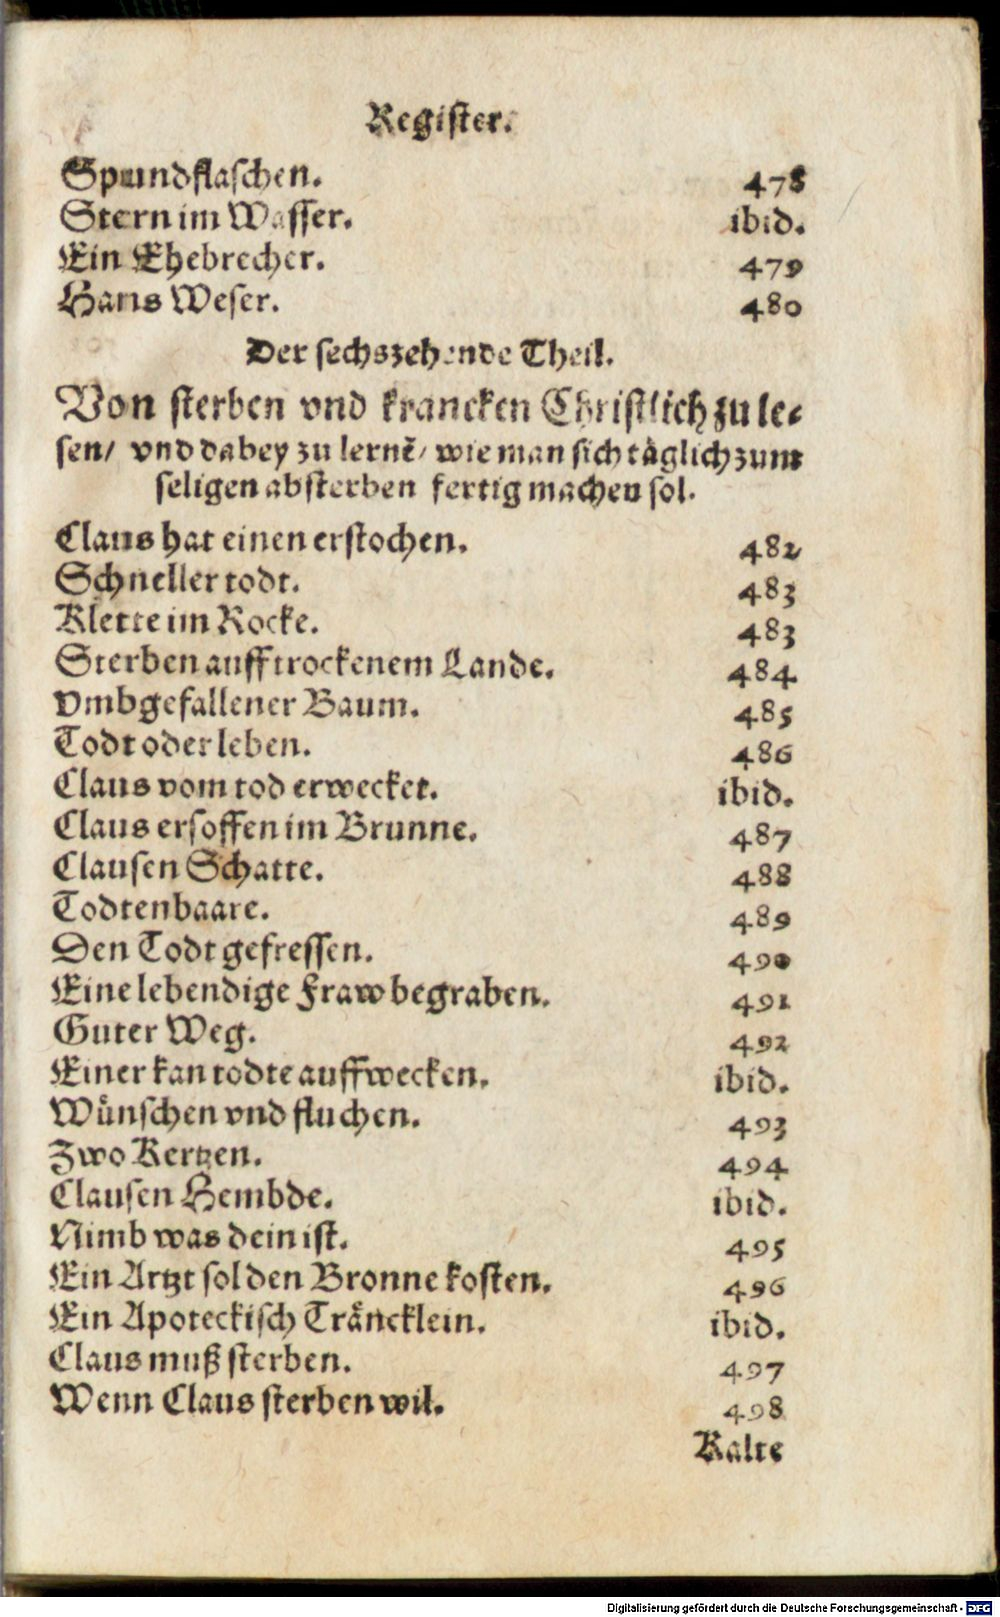 Register.
Spundflaschen. 478
Stern im Wasser. ibid.
Ein Ehebrecher. 479
Hans Weser. 480
Der sechszehende Theil.
Von sterben vnd krancken Christlich zu le-
sen/ vnd dabey zu lernẽ/ wie man sich täglich zum
seligen absterben fertig machen sol.
Claus hat einen erstochen. 482
Schneller todt. 483
Klette im Rocke. 483
Sterben auff trockenem Lande. 484
Vmbgefallener Baum. 485
Todt oder leben. 486
Claus vom tod erwecket. ibid.
Claus ersoffen im Brunne. 487
Clausen Schatte. 488
Todtenbaare. 489
Den Todt gefressen. 490
Eine lebendige Fraw begraben. 491
Guter Weg. 492
Einer kan todte auffwecken. ibid.
Wünschen vnd fluchen. 493
Zwo Kertzen. 494
Clausen Hembde. ibid.
Nimb was dein ist. 495
Ein Artzt sol den Bronne kosten. 496
Ein Apoteckisch Träncklein. ibid.
Claus muß sterben. 497
Wenn Claus sterben wil. 498
Kalte
Digitalisierung gefördert durch die Deutsche Forschungsgemeinschaft - DFG